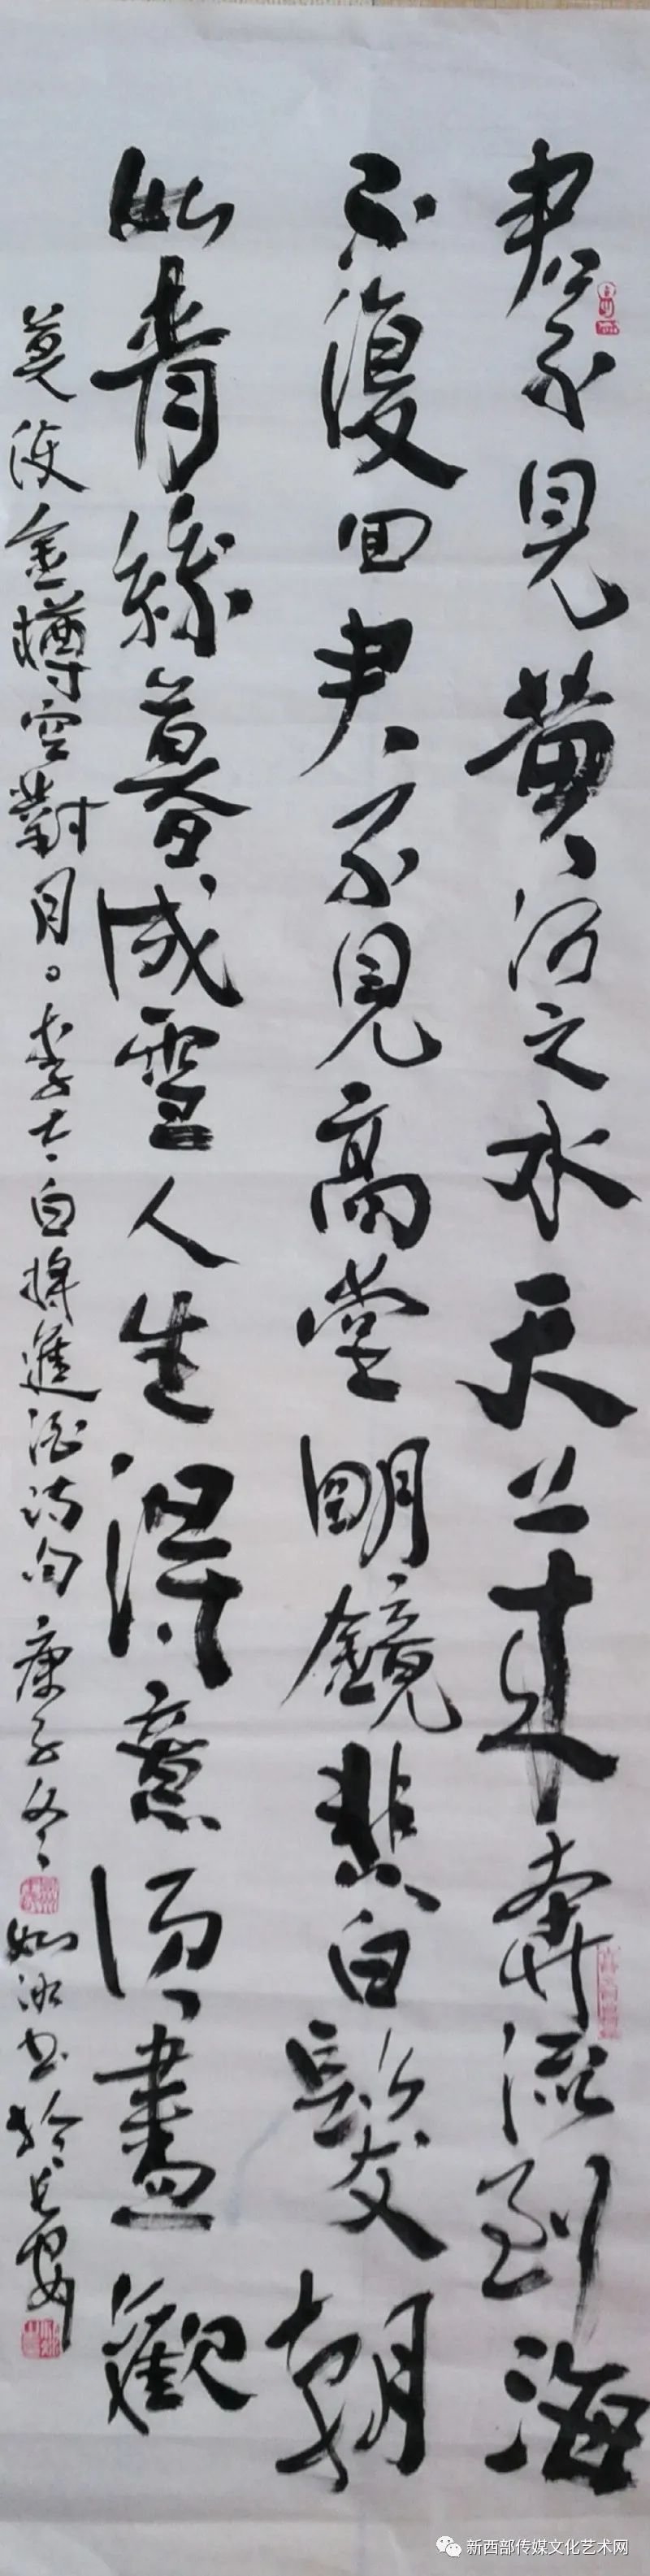 君不見黄河之水天上来奔流到海
不復回君不見高堂明鏡悲白髮朝
如青絲暮成雪人生得意須盡歡
莫使金樽空對月。李太白将進酒诗句庚子冬如冰书於长安
新西部传媒文化艺术网